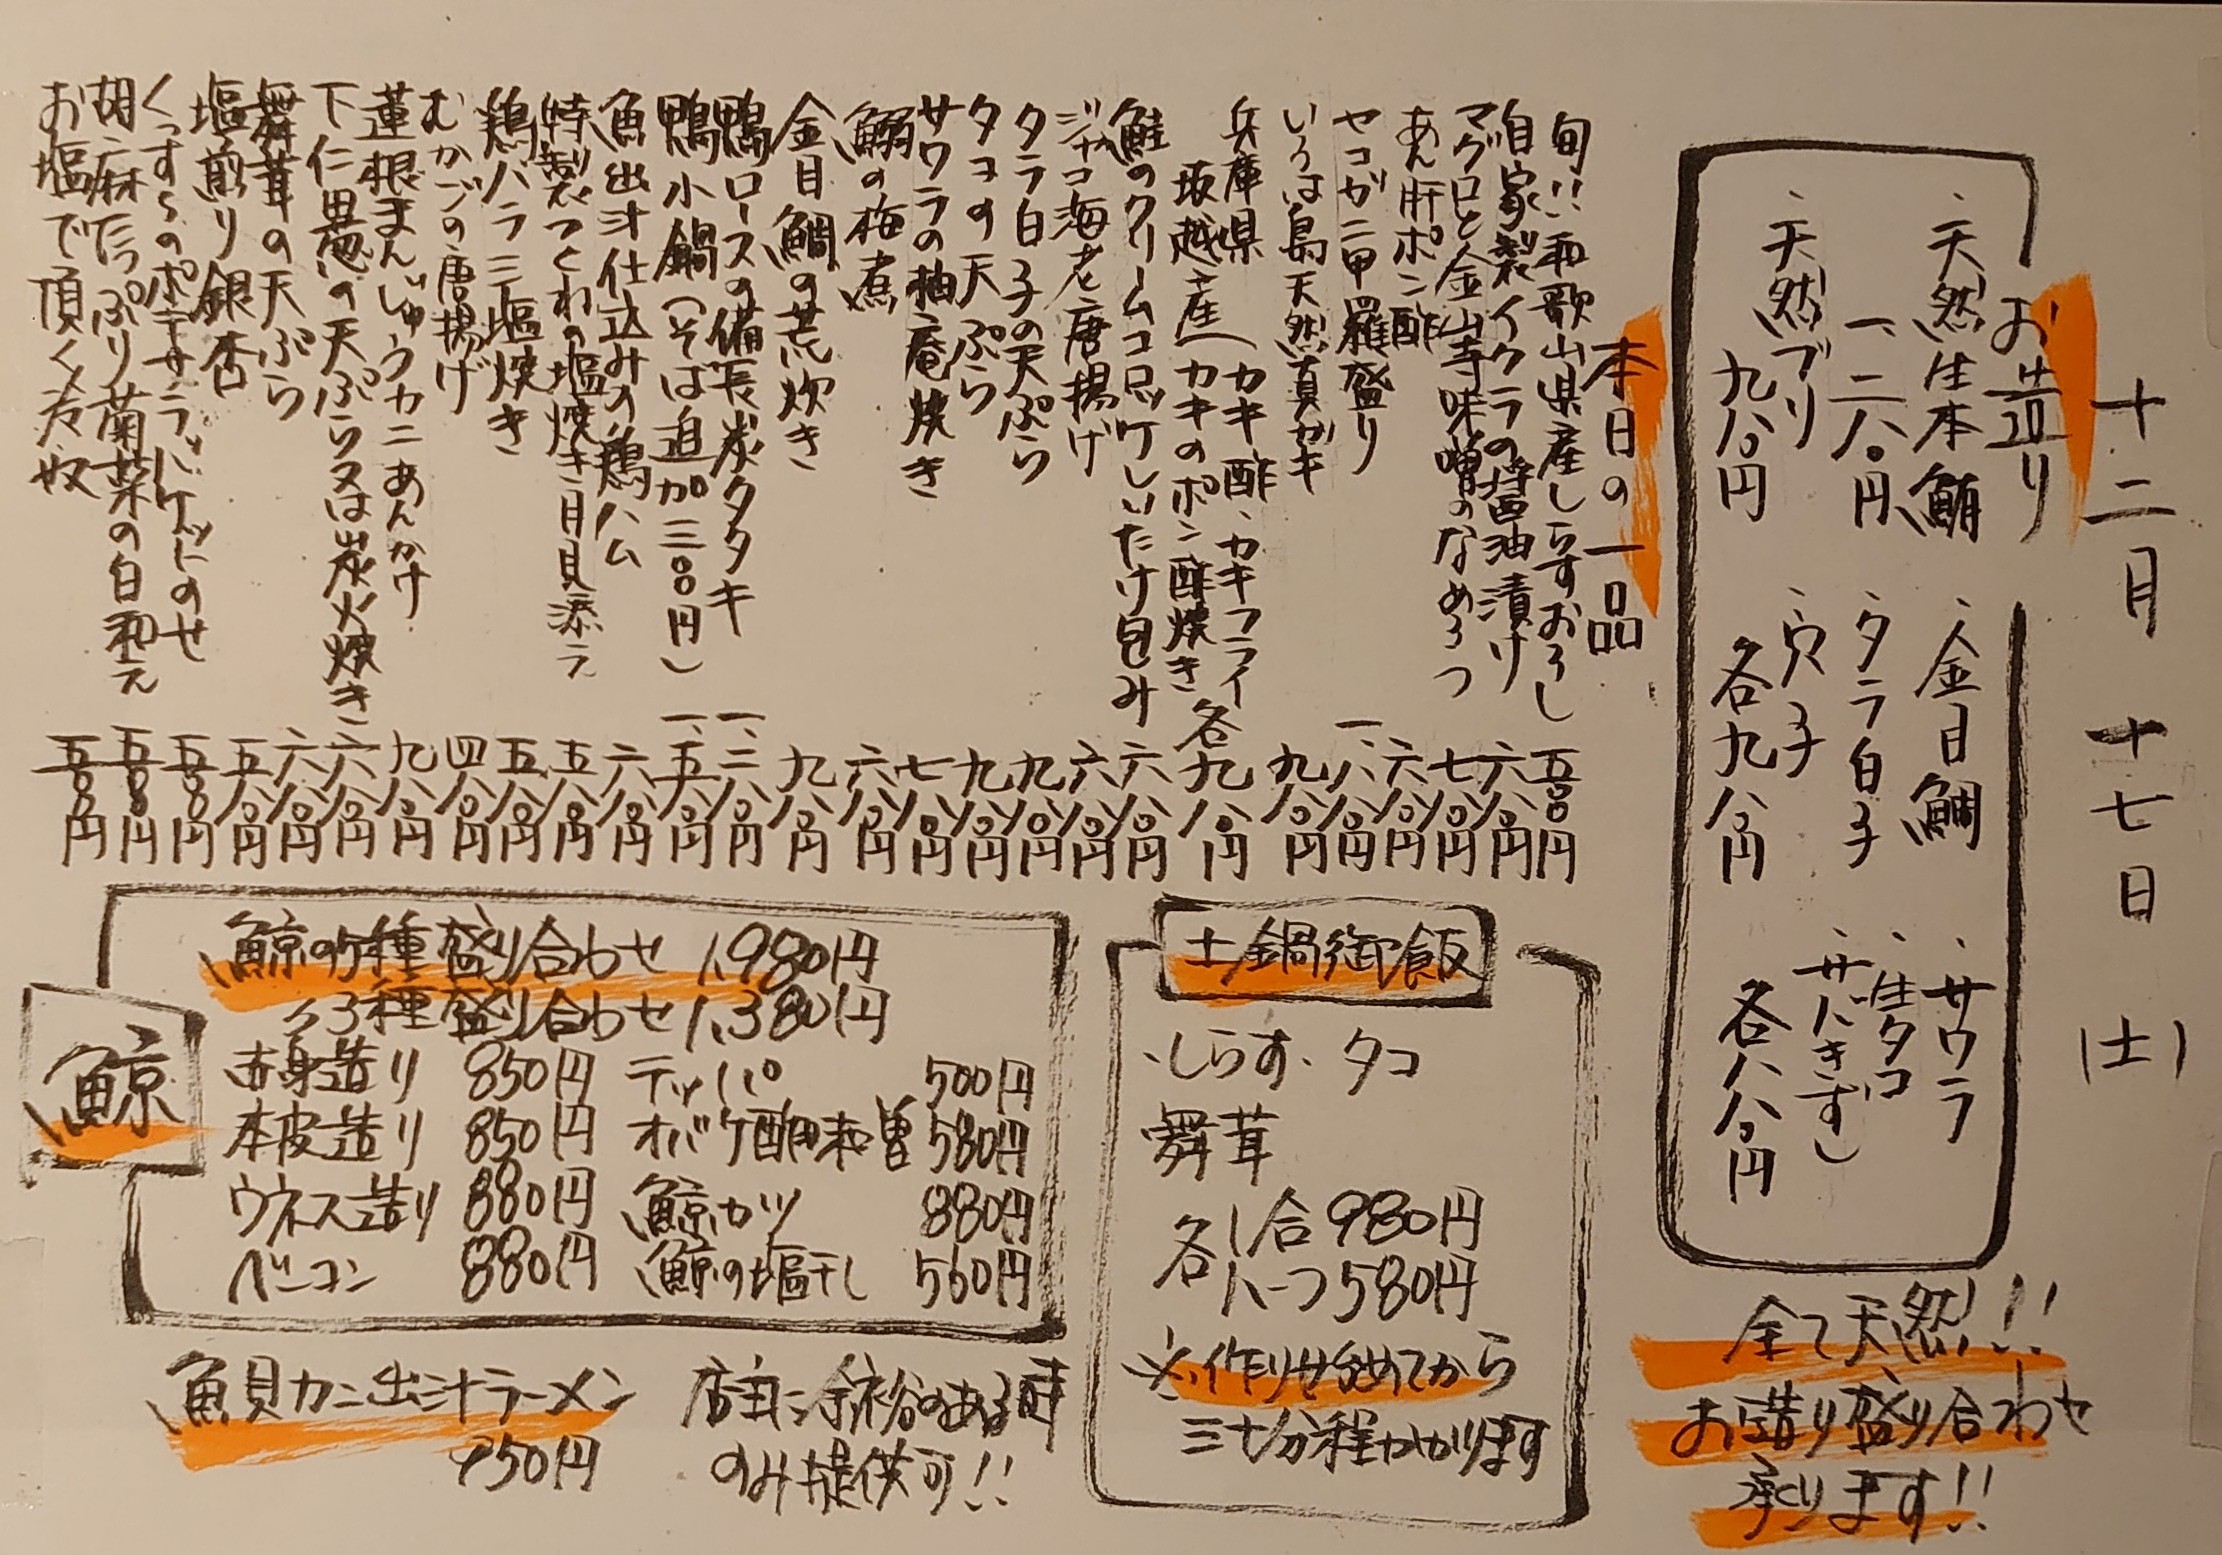 十二月 十七日 (土)
お造り
・天然生本鮪
一、二八〇円
・天然ブリ
九八〇円
・金目鯛
・タラ白子
・穴子
各九八〇円
・サワラ
・生タコ
・サバきずし
各八八〇円
全て天然!!
お造り盛り合わせ
承ります!!
本日の一品
旬!!和歌山県産しらすおろし 五〇〇円
自家製イクラの醤油漬け 六八〇円
マグロと金山寺味噌のなめろう 七八〇円
あん肝ポン酢 六八〇円
セコガニ甲羅盛り 一、八八〇円
いろは島天然真ガキ 九八〇円
兵庫県坂越産(カキ酢、カキフライ カキのポン酢焼き 各九八〇円
鮭のクリームコロッケしいたけ包み 六八〇円
ジャコ海老唐揚げ 六八〇円
タラ白子の天ぷら 九八〇円
タコの天ぷら 九八〇円
サワラの柚庵焼き 七八〇円
鰯の梅煮 六八〇円
金目鯛の荒炊き 九八〇円
鴨ロースの備長炭タタキ 一、三八〇円
鴨小鍋(そば追加三〇〇円) 一、五八〇円
魚出汁仕込みの鶏ハム 六八〇円
特製つくねの塩焼き月見添え 五八〇円
鶏ハラミ塩焼き 五八〇円
むかごの唐揚げ 四八〇円
蓮根まんじゅうカニあんかけ 九八〇円
下仁田葱の天ぷら又は炭火焼き 六八〇円
舞茸の天ぷら 六八〇円
塩煎り銀杏 五八〇円
くっすんのポテサラバケットにのせ 五八〇円
胡麻たっぷり菊菜の白和え 五八〇円
お塩で頂く冷奴 五〇〇円
土鍋御飯
・しらす・タコ
・舞茸
各1合980円
各ハーフ580円
※作り始めてから
三十分程かかります
鯨
鯨の5種盛り合わせ 1,980円
〃3種盛り合わせ 1,380円
赤身造り 850円 テッパ 500円
本皮造り 850円 オバケ酢味噌 580円
ウネス造り 880円 鯨カツ 880円
ベーコン 880円 鯨の塩干し 560円
魚貝カニ出汁ラーメン
950円
店主に余裕のある時
のみ提供可!!